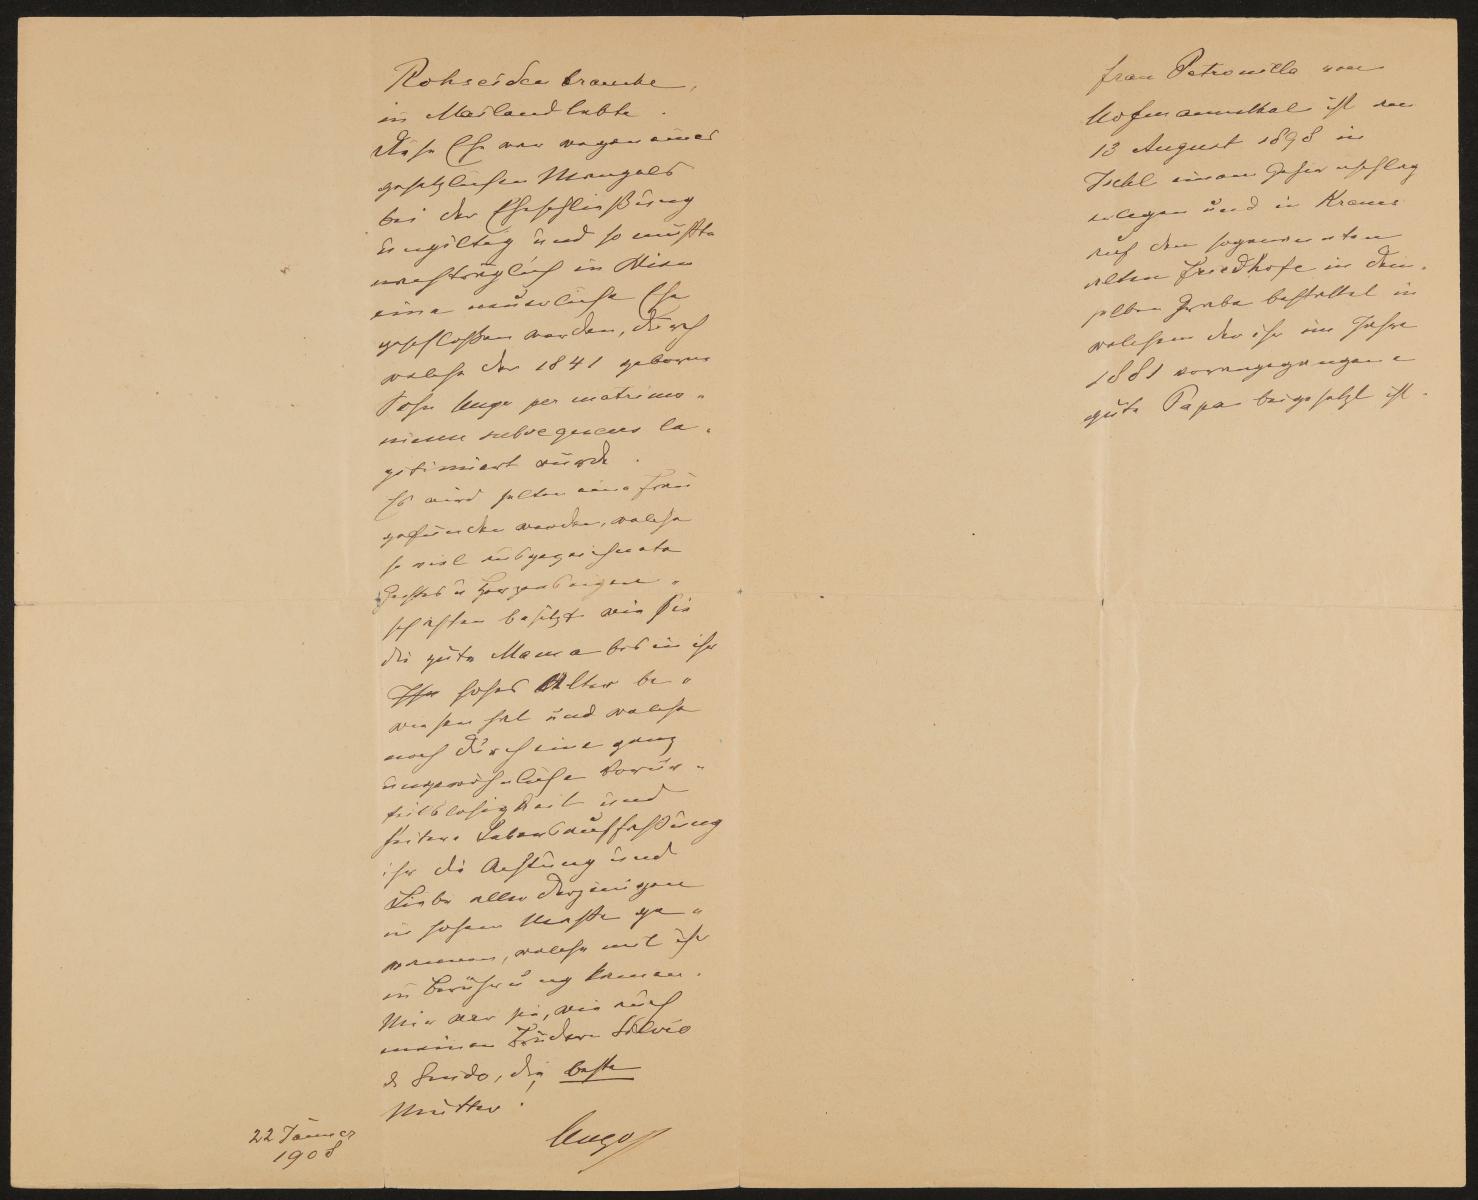 Rohseidenbranche,
in Mailand lebte.
Diese Ehe war wegen eines
gesetzlichen Mangels
bei der Eheschließung
ungiltig und so mußte
nachträglich in Wien
eine neuerliche Ehe
geschloßen werden, durch
welche der 1841 geborene
Sohn Hugo per matrimo-
nium subsequens le-
gitimiert wurde.
Es wird selten eine Frau
gefunden werden, welche
so viel ausgezeichnete
Geistes u Herzenseigen-
schaften besitzt wie sie
die gute Mama bis in ihr
Ihr hohes Alter be-
wiesen hat und welche
noch durch eine ganz
ungewöhnliche Vorur-
teilslosigkeit und
heitere Lebensauffaßung
ihr die Achtung und
Liebe aller derjenigen
in hohem Maße ge-
wannen, welche mit ihr
in Berührung kamen.
Mir war sie, wie auch
meinen Brüdern Silvio
& Guido, die beste
Mutter!
Hugo
22 Jänner
1908
Frau Petronilla von
Hofmannsthal ist am
13 August 1898 in
Ischl einem Gehirnschlag
erlegen und in Krems
auf dem sogenannten
alten Friedhofe in dem-
selben Grabe bestattet in
welchem der ihr im Jahre
1881 vorangegangene
gute Papa beigesetzt ist.